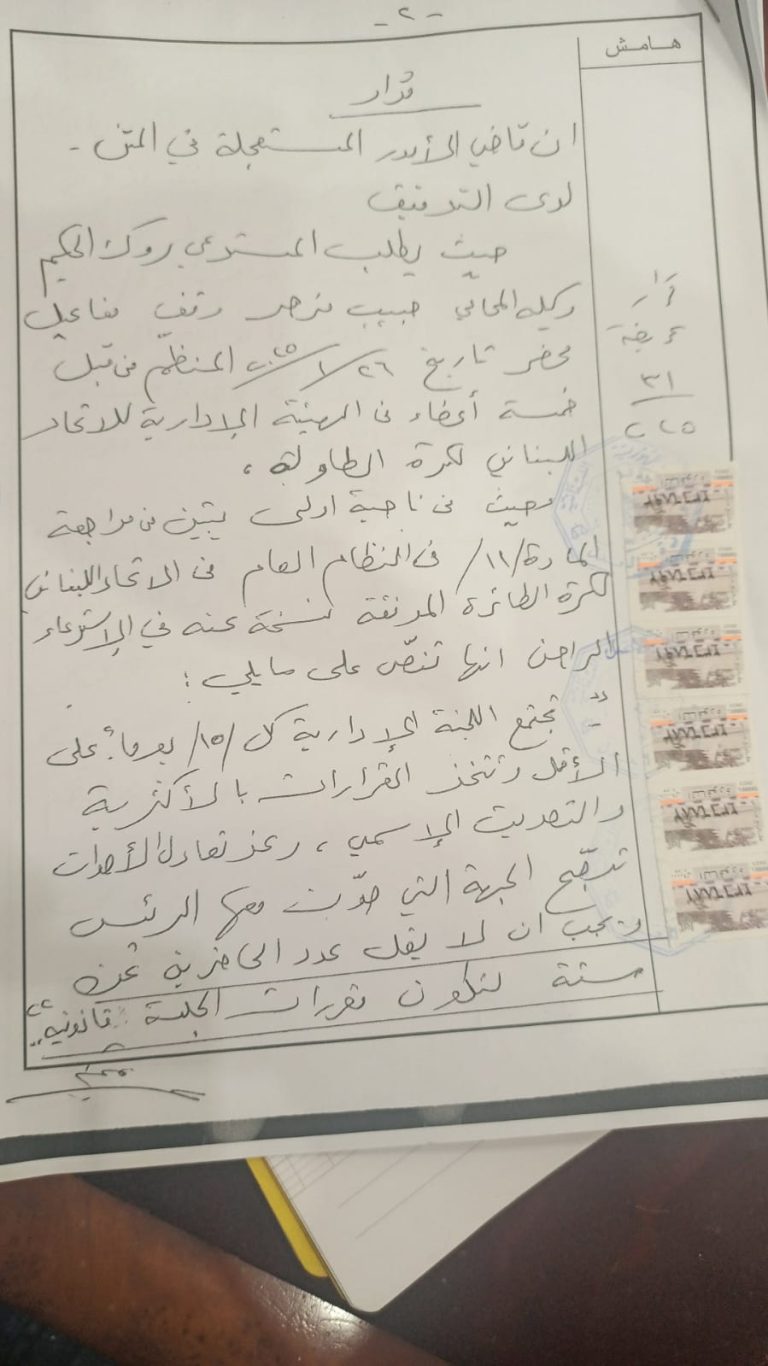 - ٢ -
هامش
قرار
ان قاضي الأمور المستعجلة في المتن -
لدى التدقيق
حيث يطلب المستدعي روك الحكيم
وكيله المحامي حبيب مزهر وقف مفاعيل
محضر تاريخ ٢٦/١/٢٠٢٥ المنظّم من قبل
خمسة أعضاء من الهيئة الإدارية للاتحاد
اللبناني لكرة الطاولة،
وحيث من ناحية اولى يتبين من مراجعة
المادة /١١/ من النظام العام من الاتحاد اللبناني
لكرة الطائرة المرفقة نسخة عنه في الاستدعاء
الراهن انها تنصّ على ما يلي :
" تجتمع اللجنة الإدارية كل /١٥/ يوماً على
الأقل وتتخذ القرارات بالأكثرية
والتصويت الإسمي، وعند تعادل الأصوات
ترجّح الجهة التي صوّت معها الرئيس
ويجب ان لا يقل عدد الحاضرين عن
ستة لتكون مقررات الجلسة قانونية"
قرار
عريضة
٣١
٢٠٢٥